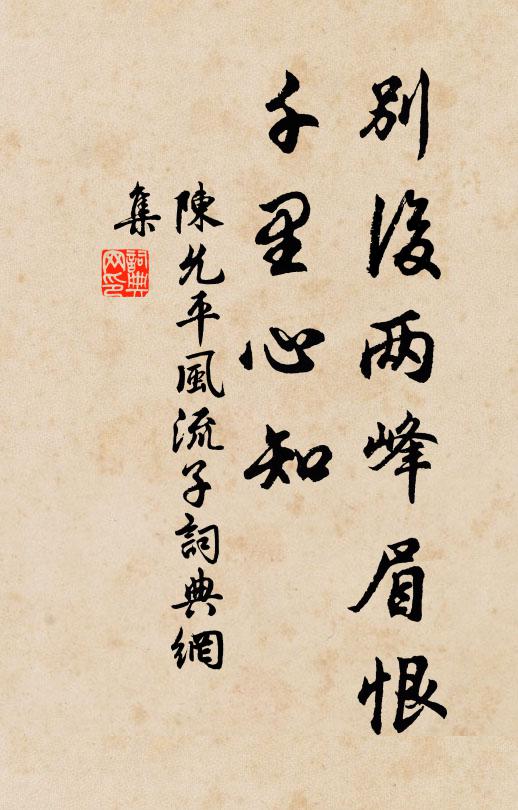 别後两峰眉恨
千里心知
陳允平風流子詞典網
集
詞典
网印